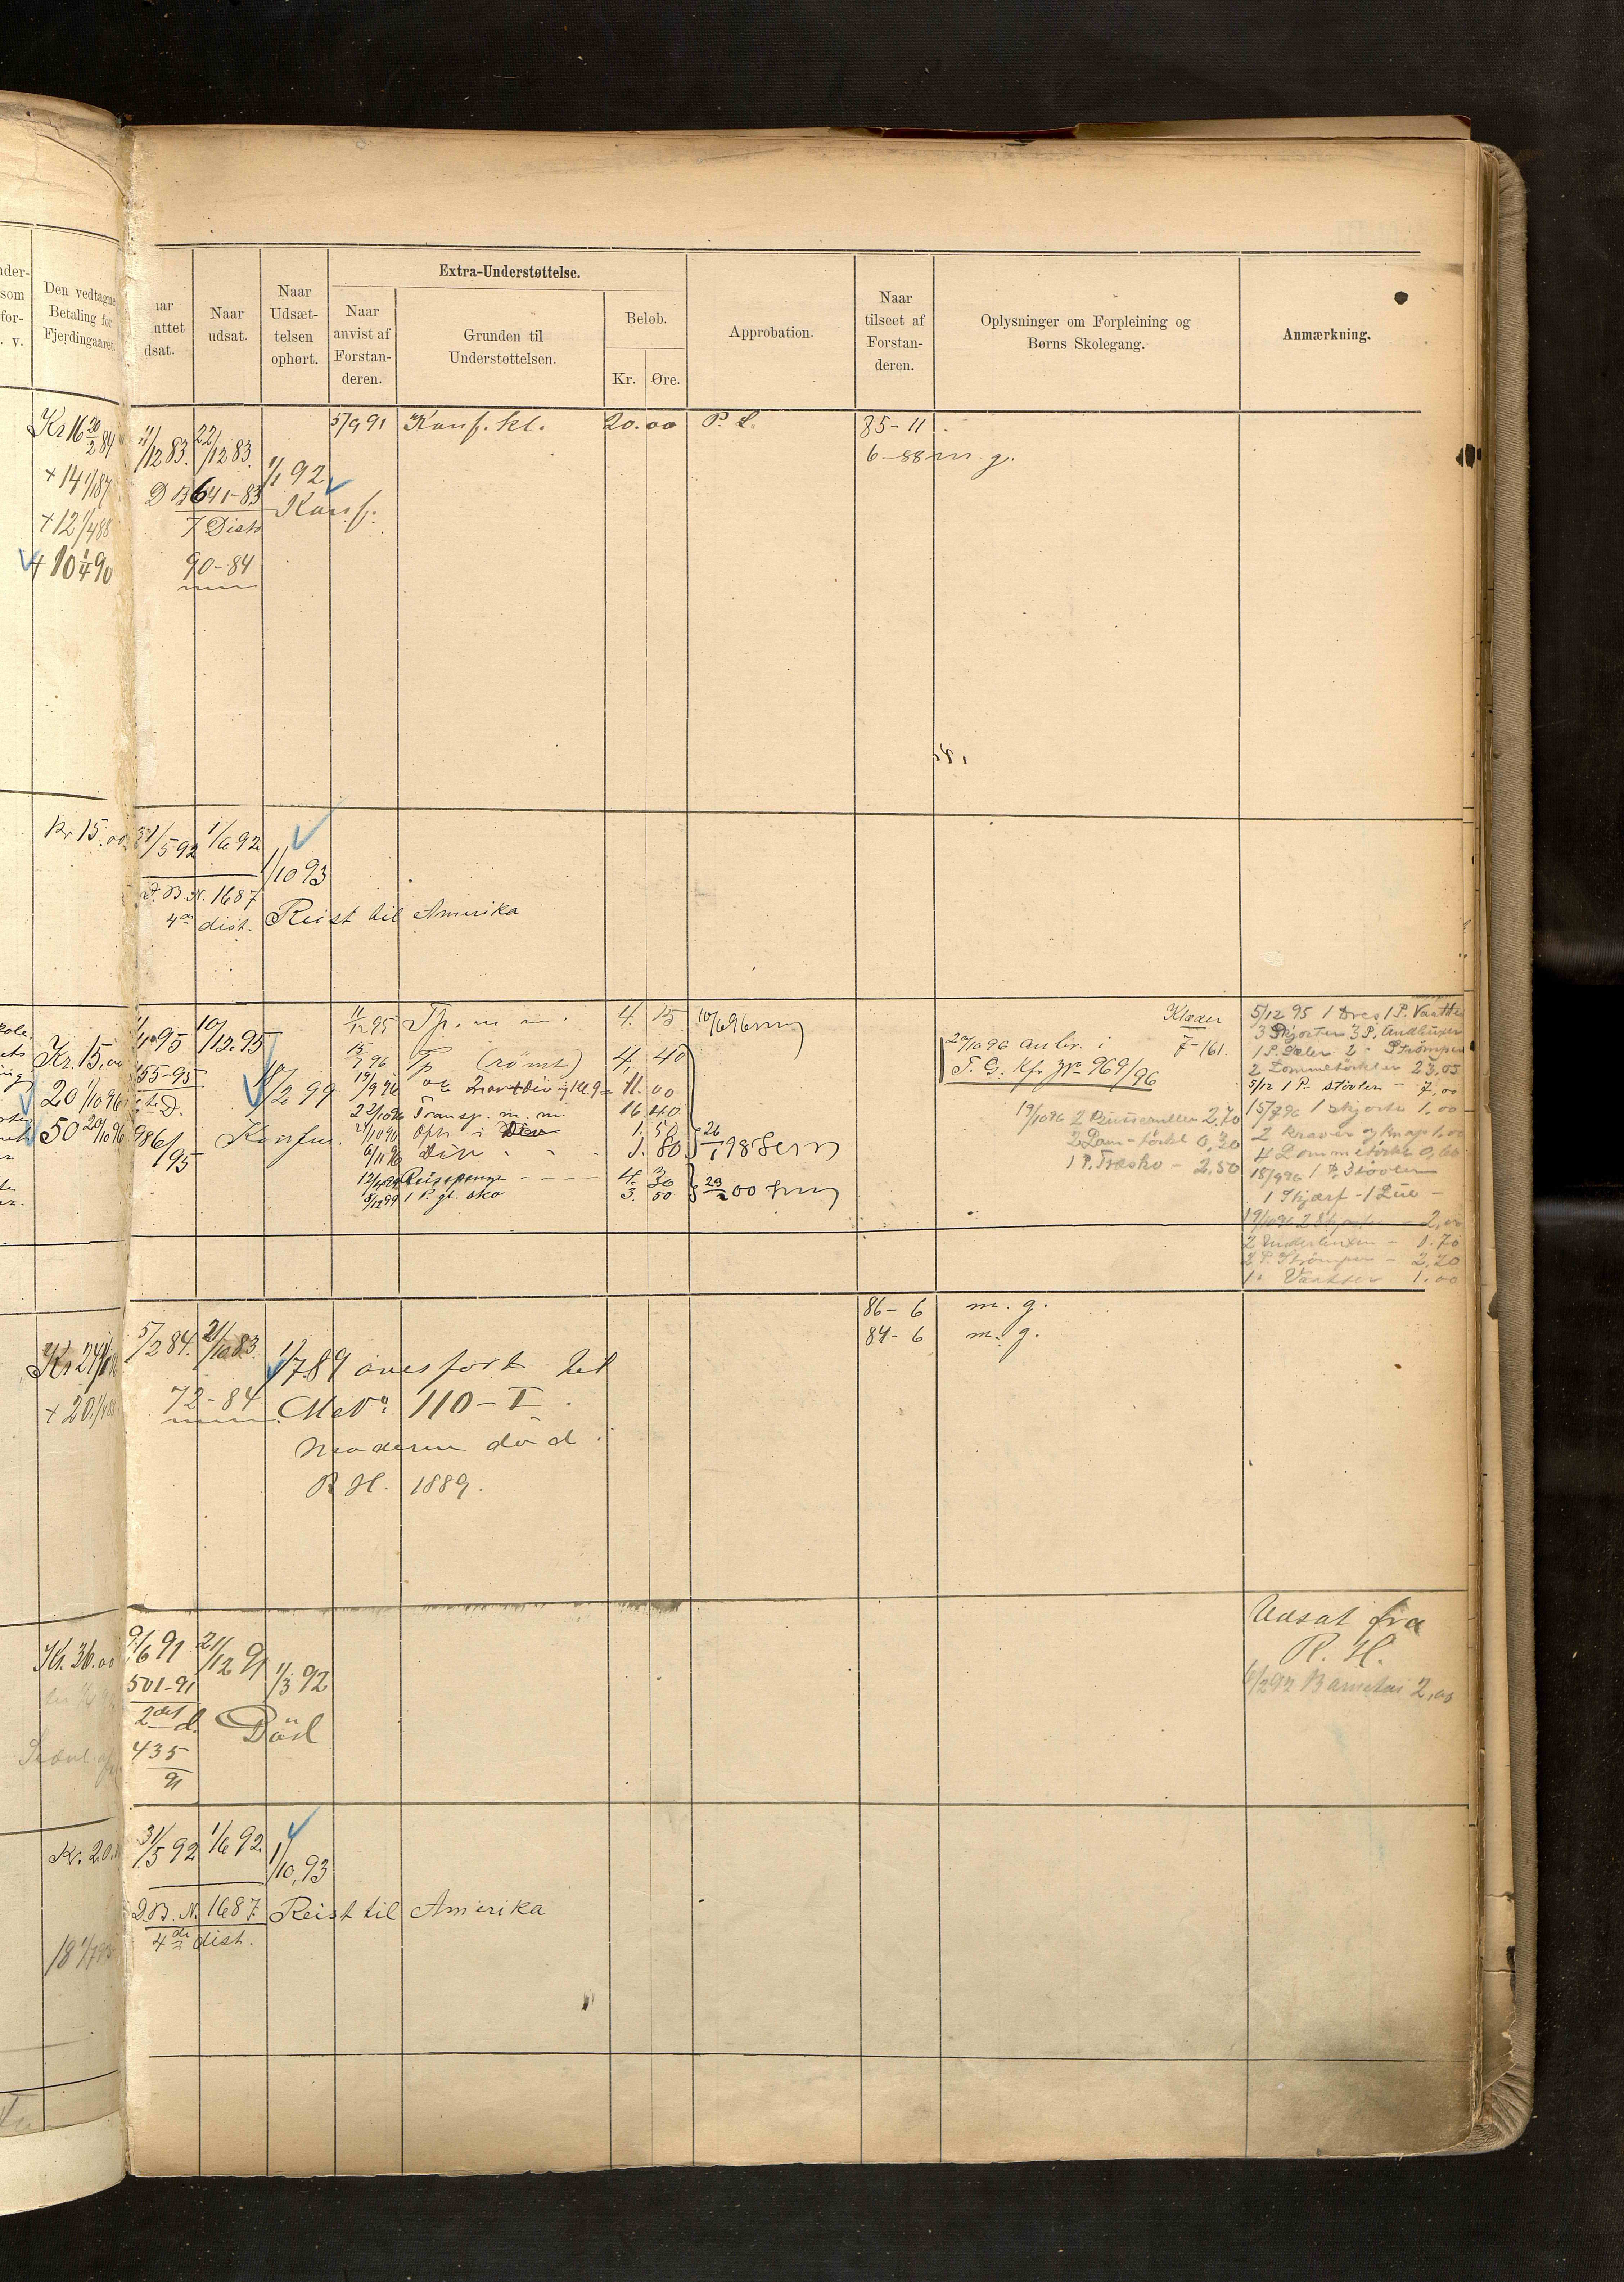 Den vedtagne
Betaling for
Fjerdingaaret.
Naar
udsat.
Naar
Udsæt-
telsen
ophørt.
Extra-Understøttelse.
Naar
anvist af
Forstan-
deren.
Grunden til
Understøttelsen.
Beløb.
Kr. Øre.
Approbation.
Naar
tilseet af
Forstan-
deren.
Oplysninger om Forpleining og
Børns Skolegang.
Anmærkning.
11/12 83. 22/12 83.
D B 641-83
7 Dist
90-84
1/1 92
Konf.
5/9 91 Konf. kl. 20.00 P. L.
85-11
6-88 m. g.
+ 14 1/1 87
+ 12 1/4 88
+ 10 1/4 90
Kr 15.00
31/5 92 1/6 92
1/10 93
D. B. N. 1687
4de dist.
Reist til Amerika
Kr. 15,00
20 1/10 96
50 20/10 96
10/12 95
155-95
986/95
10/2 99
Konfir.
11/12 95 Tp. m m. 4. 15
15/7 96 Tp (rømt) 4, 40
19/9 96 11.00
22/10 96 Transp. m. m. 16.40
1. 50
6/11 96 1. 80
Reisepenge 4. 30
5/12 99 1 P. gl. sko 3. 00
10/6 96
26/1 98
23/2 00
Klæder
7-161.
20/10 96 anbr. i
T. G. Kfr Nr 969/96
19/10 96 2 Busseruller 2,70
2 Lom-tørkl 0,20
1 P. Træsko - 2,50
5/12 95 1 Dres 1 P. Vanter
3 Skjorter 3 P. Undbuxer
1 P. Seler 2 - Strømper
2 Lommetørklær 23,05
5/12 1 P. støvler - 7,00
15/7 96 1 skjorte 1,00
2 Kraver og knap 1.00
4 Lommetørkl 0,60
15/9 96 1 P. Støvler
1 Skjærf - 1 Lue -
19/10 96 2 Skjorter - 2,00
2 Underbuxer - 1.70
2 P. Strømper - 2,20
1 - Vanter 1.00
5/2 84. 21/10 83.
72-84
1/7 89 overført til
No 110-I
Moderen død.
R H. 1889.
86-6 m. g.
84-6 m. g.
Kr. 36.00
9/6 91 21/12 91
501-91
2det d.
435
91
1/3 92
Død
Udsat fra
R. H.
6/2 92 Barnetøi 2,00
31/5 92 1/6 92
1/10, 93
D. B. N. 1687
4de dist.
Reist til Amerika